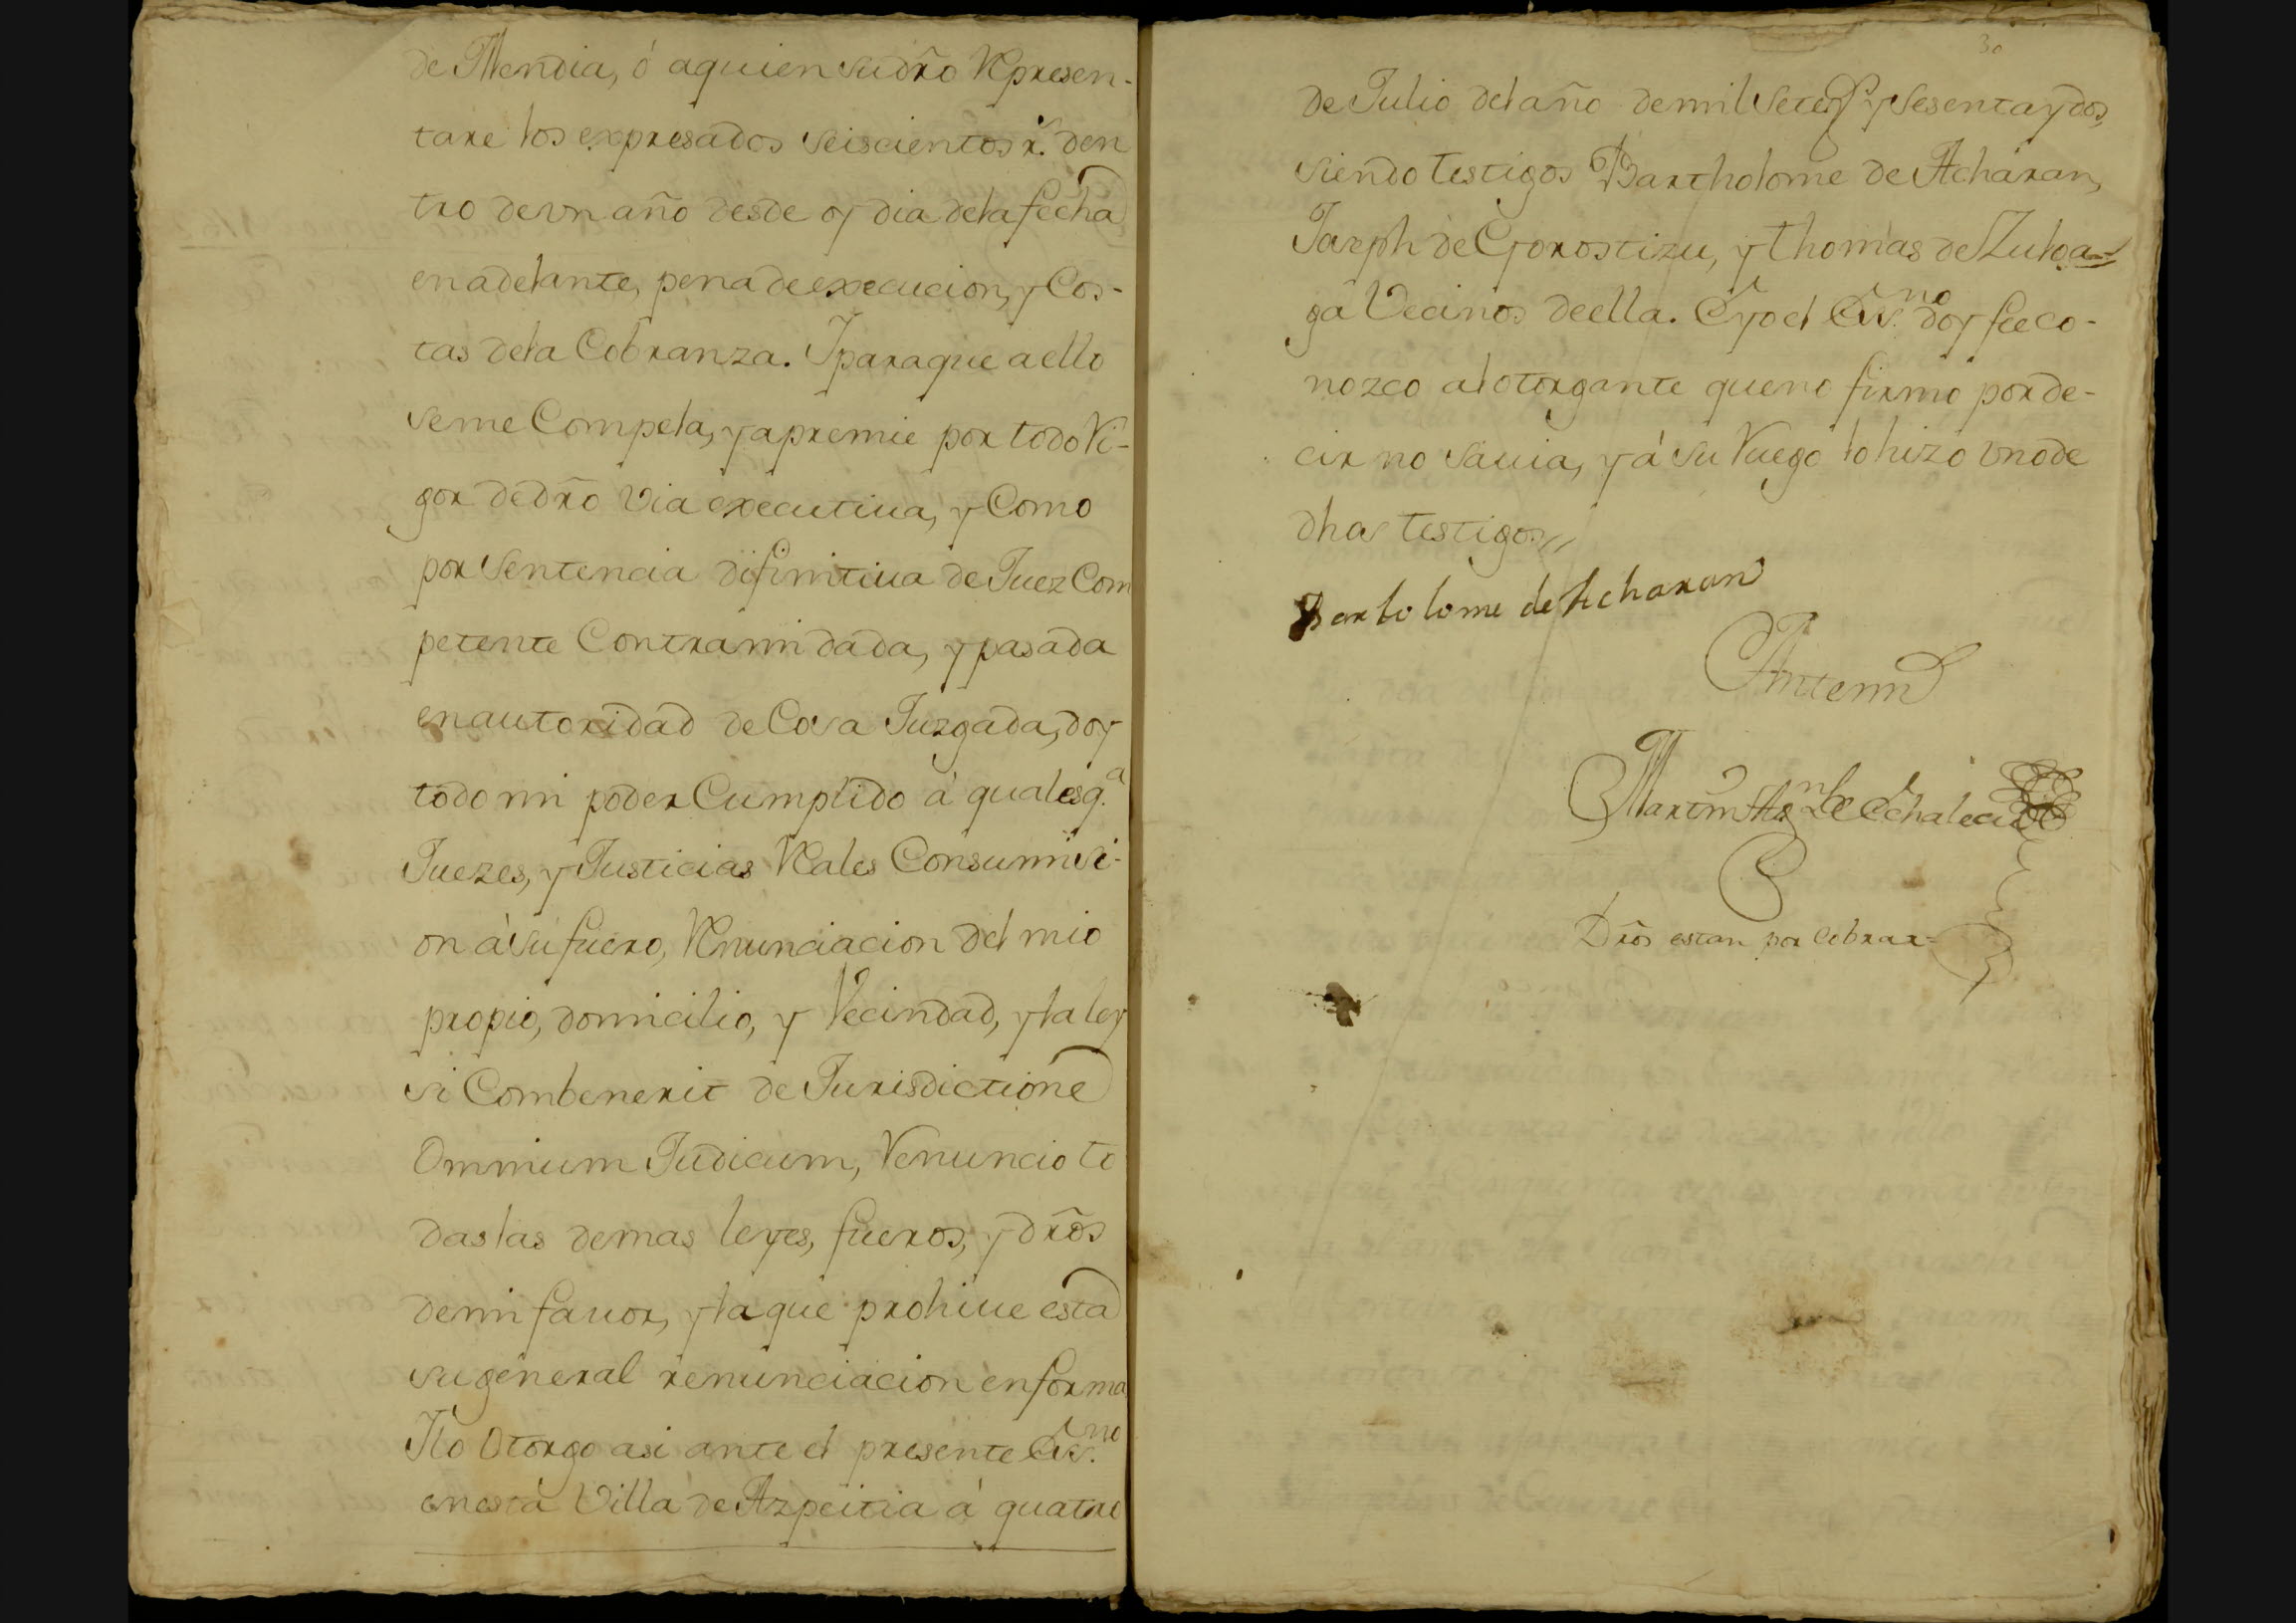 de Mendia, ó aquien su dr̃o Represen-
tare los expresados seiscientos r.ˢ den
tro de vn año desde oy dia de la fecha
en adelante, pena de execucion, y Cos-
tas de la Cobranza. Y para que a ello
se me Compela, y apremie por todo Ri-
gor de dr̃o via executiua, y Como
por Sentencia difinitiua de Juez Com
petente Contra mi dada, y pasada
en autoridad de Cosa Juzgada, doy
todo mi poder Cumplido á qualesq.ᵃ
Juezes, y Justicias Rales Con sumisi-
on á su fuero, Renunciacion del mio
propio, domicilio, y Vecindad, y la ley
si Combenerit de Jurisdictione
Omnium Judicum, Renuncio to
das las demas leyes, fueros, y dr̃os
de mi fauor, y la que prohiue esta
su general renunciacion en forma
Y lo Otorgo asi ante el presente Ess.ⁿᵒ
en esta Villa de Azpeitia á quatro
30
de Julio del año de mil setez.ˢ y sesenta y dos,
siendo testigos Bartholome de Acharan,
Joseph de Gorostizu, y Thomas de Zuloa-
ga Vecinos de ella. E yo el Ess.ⁿᵒ doy fee co-
nozco al otorgante que no firmo por de-
cir no sauia, y á su Ruego lo hizo vno de
dhos testigos //
Bartolome de Acharan
Antemi
Martin Ag.ⁿ de Echalecu
Dr̃os estan por Cobrar=